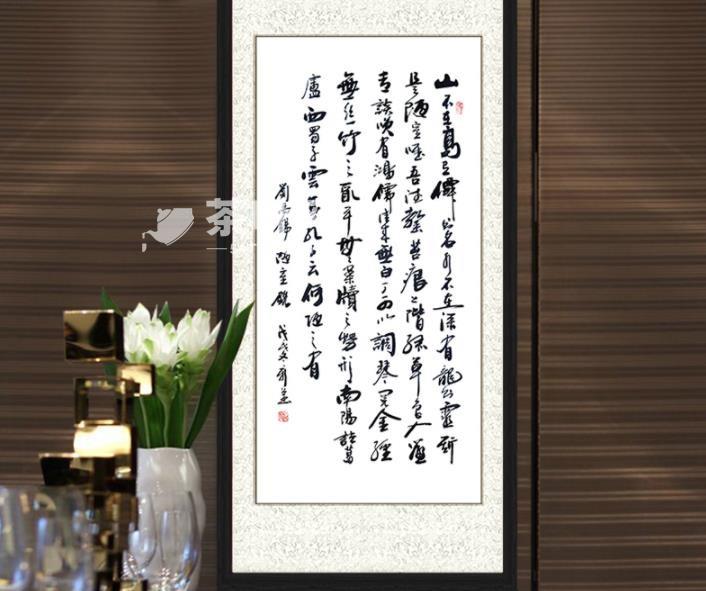 山不在高有僊則名水不在深有龍則靈斯
是陋室惟吾德馨苔痕上階綠草色入簾
青談笑有鴻儒往來無白丁可以調琴閱金經
無絲竹之亂耳無案牘之勞形南陽諸葛
廬西蜀子雲亭孔子云何陋之有
劉禹錫陋室銘戊戌冬
茶